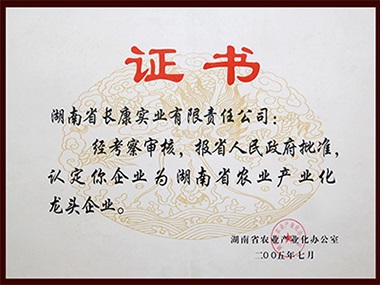 证书
湖南省长康实业有限责任公司：
经考察审核，报省人民政府批准，
认定你企业为湖南省农业产业化
龙头企业。
湖南省农业产业化办公室
二〇〇五年七月